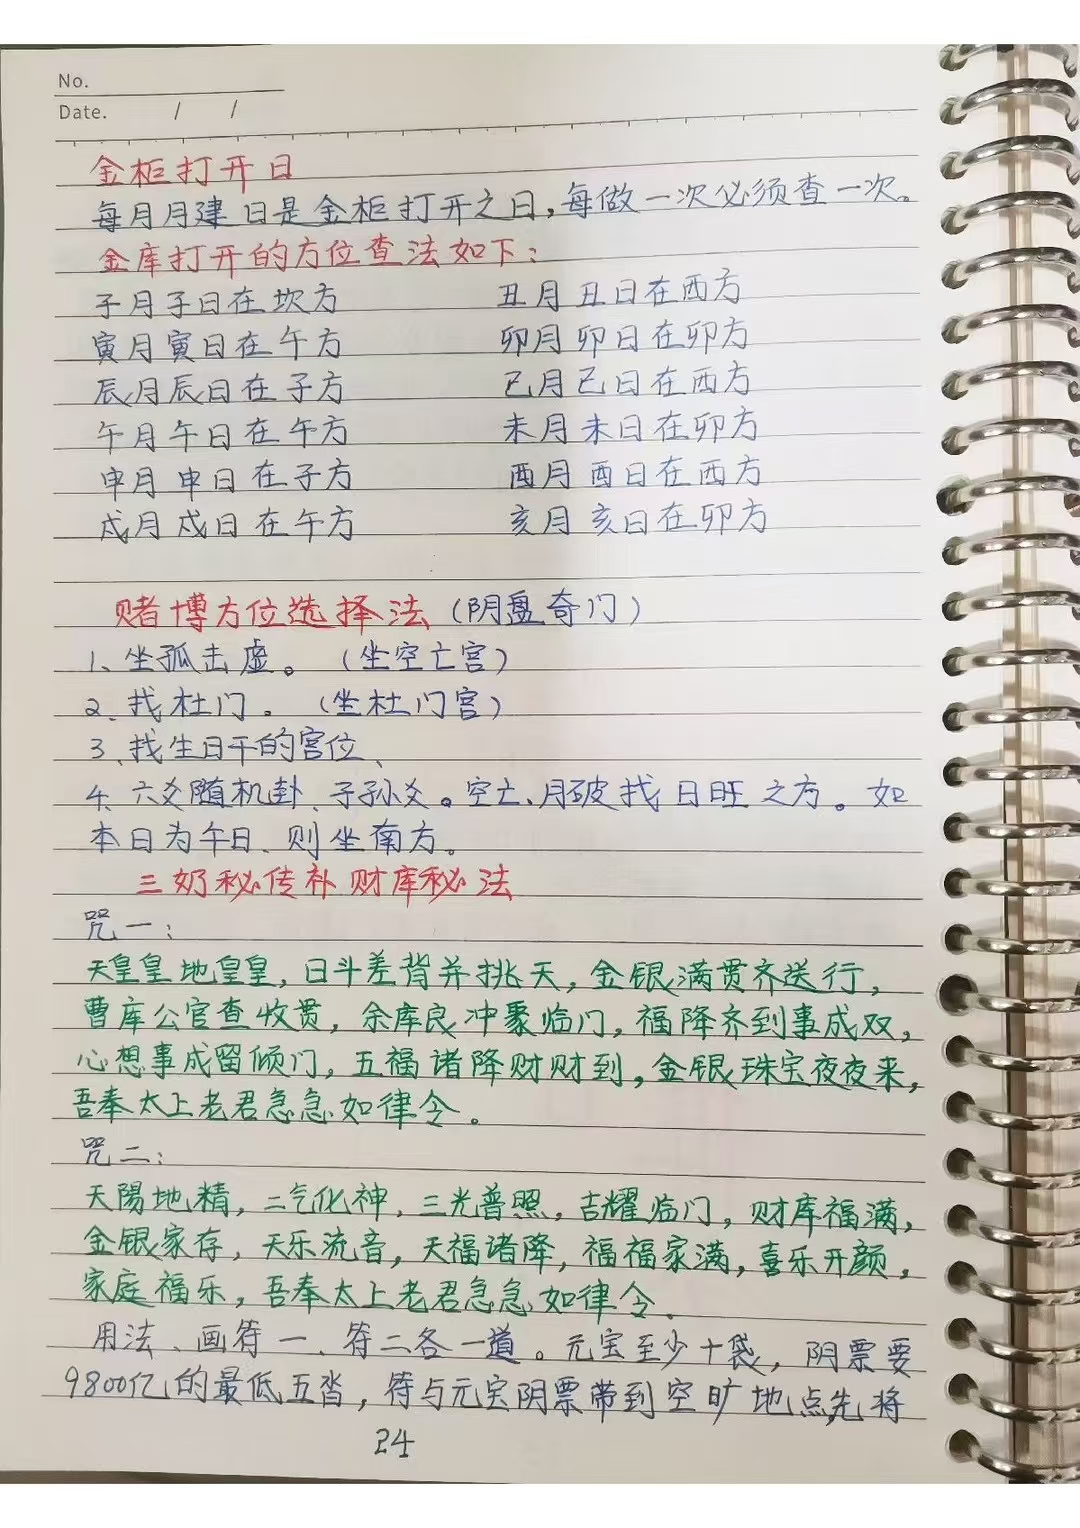 No.
Date. / /
金柜打开日
每月月建日是金柜打开之日,每做一次必须查一次。
金库打开的方位查法如下:
子月子日在坎方 丑月丑日在西方
寅月寅日在午方 卯月卯日在卯方
辰月辰日在子方 巳月巳日在西方
午月午日在午方 未月未日在卯方
申月申日在子方 酉月酉日在西方
戌月戌日在午方 亥月亥日在卯方
赌博方位选择法(阴盘奇门)
1、坐孤击虚。(坐空亡宫)
2、找杜门。(坐杜门宫)
3、找生日干的宫位、
4、六爻随机卦、子孙爻。空亡、月破找日旺之方。如
本日为午日、则坐南方。
三奶秘传补财库秘法
咒一:
天皇皇地皇皇,日斗差背并挑天,金银满贯齐送行,
曹库公官查收贯,余库良冲聚临门,福降齐到事成双,
心想事成留倾门,五福诸降财财到,金银珠宝夜夜来,
吾奉太上老君急急如律令。
咒二:
天陽地精,二气化神,三光普照,吉耀临门,财库福满,
金银家存,天乐流音,天福诸降,福福家满,喜乐开颜,
家庭福乐,吾奉太上老君急急如律令。
用法、画符一、符二各一道。元宝至少十袋,阴票要
9800亿的最低五沓,符与元宝阴票带到空旷地点,先将
24